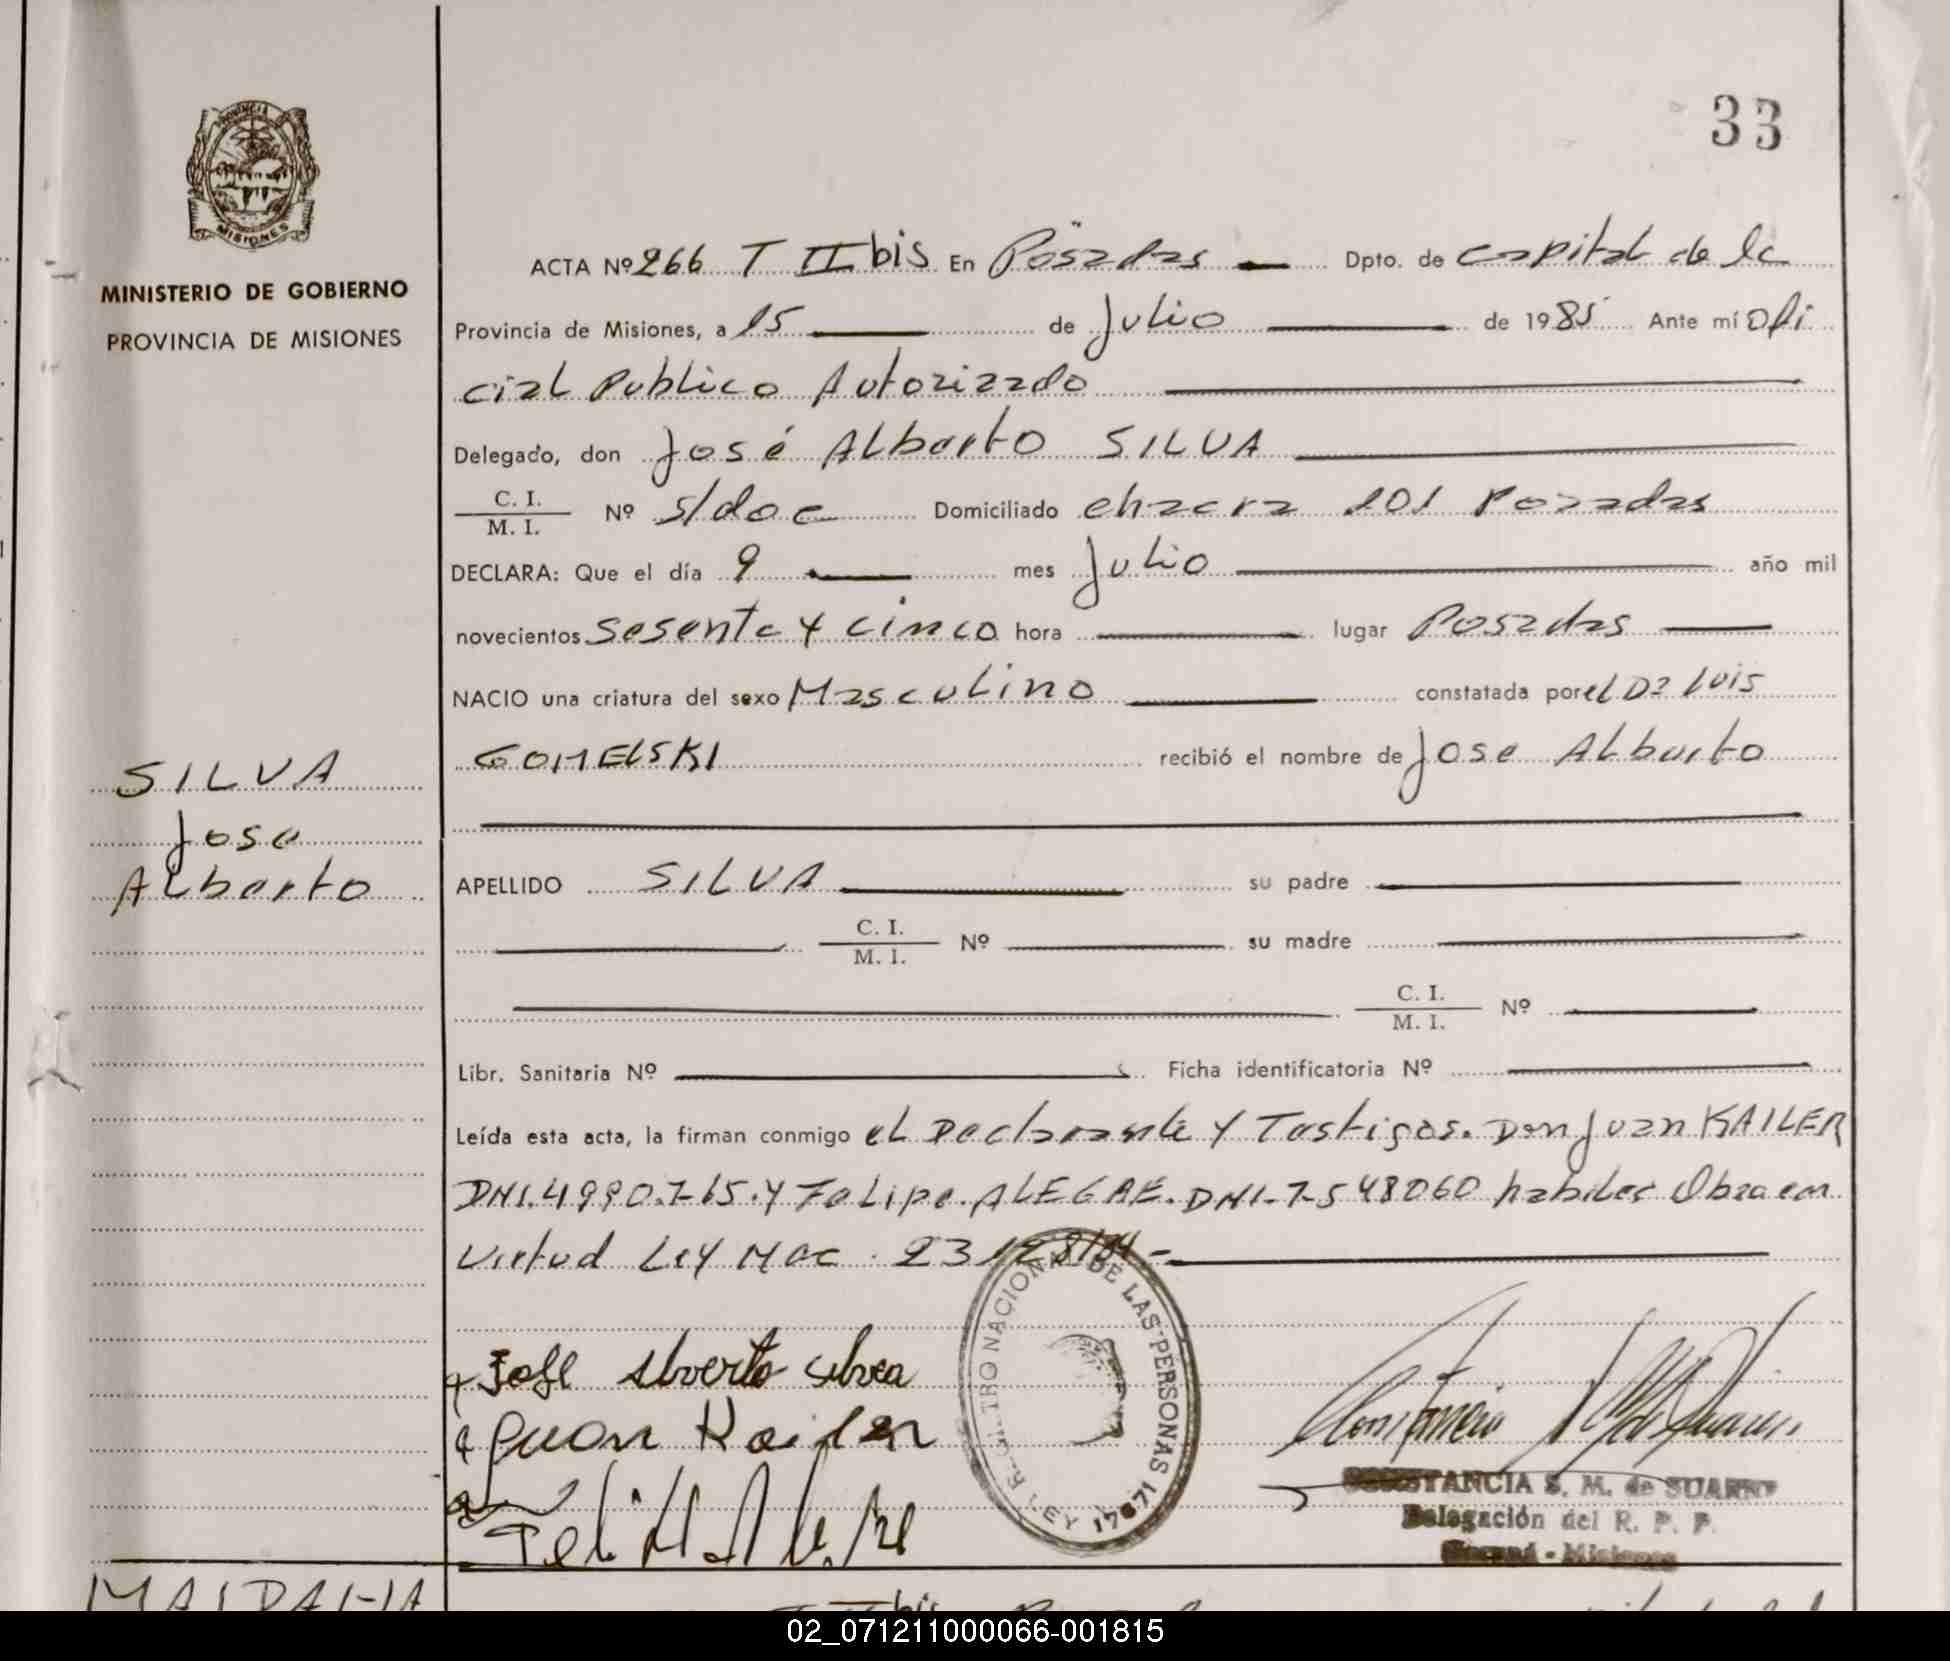 33
PROVINCIA
MISIONES
MINISTERIO DE GOBIERNO
PROVINCIA DE MISIONES
ACTA Nº 266 T II bis En Posadas Dpto. de Capital de la
Provincia de Misiones, a 15 de Julio de 1985 Ante mí Ofi
cial Publico Autorizado
Delegado, don José Alberto SILVA
C. I.
M. I.
Nº s/doc Domiciliado chacra 101 Posadas
DECLARA: Que el día 9 mes Julio año mil
novecientos sesenta y cinco hora lugar Posadas
NACIO una criatura del sexo Masculino constatada por el Dr Luis
GOMELSKI recibió el nombre de Jose Alberto
SILVA
Jose
Alberto
APELLIDO SILVA su padre
C. I.
M. I.
Nº su madre
C. I.
M. I.
Nº
Libr. Sanitaria Nº Ficha identificatoria Nº
Leída esta acta, la firman conmigo el Declarante y Testigos. Don Juan KAILER
DNI. 4990.765. y Felipe. ALEGRE. DNI-7548060 habiles Obra en
virtud Ley Nac. 23128/84-
José Alverto silva
Juan Kailer
REGISTRO NACIONAL DE LAS PERSONAS
LEY 17671
CONSTANCIA S. M. de SUAREZ
Delegación del R. P. P.
Misiones
II bis
02_071211000066-001815